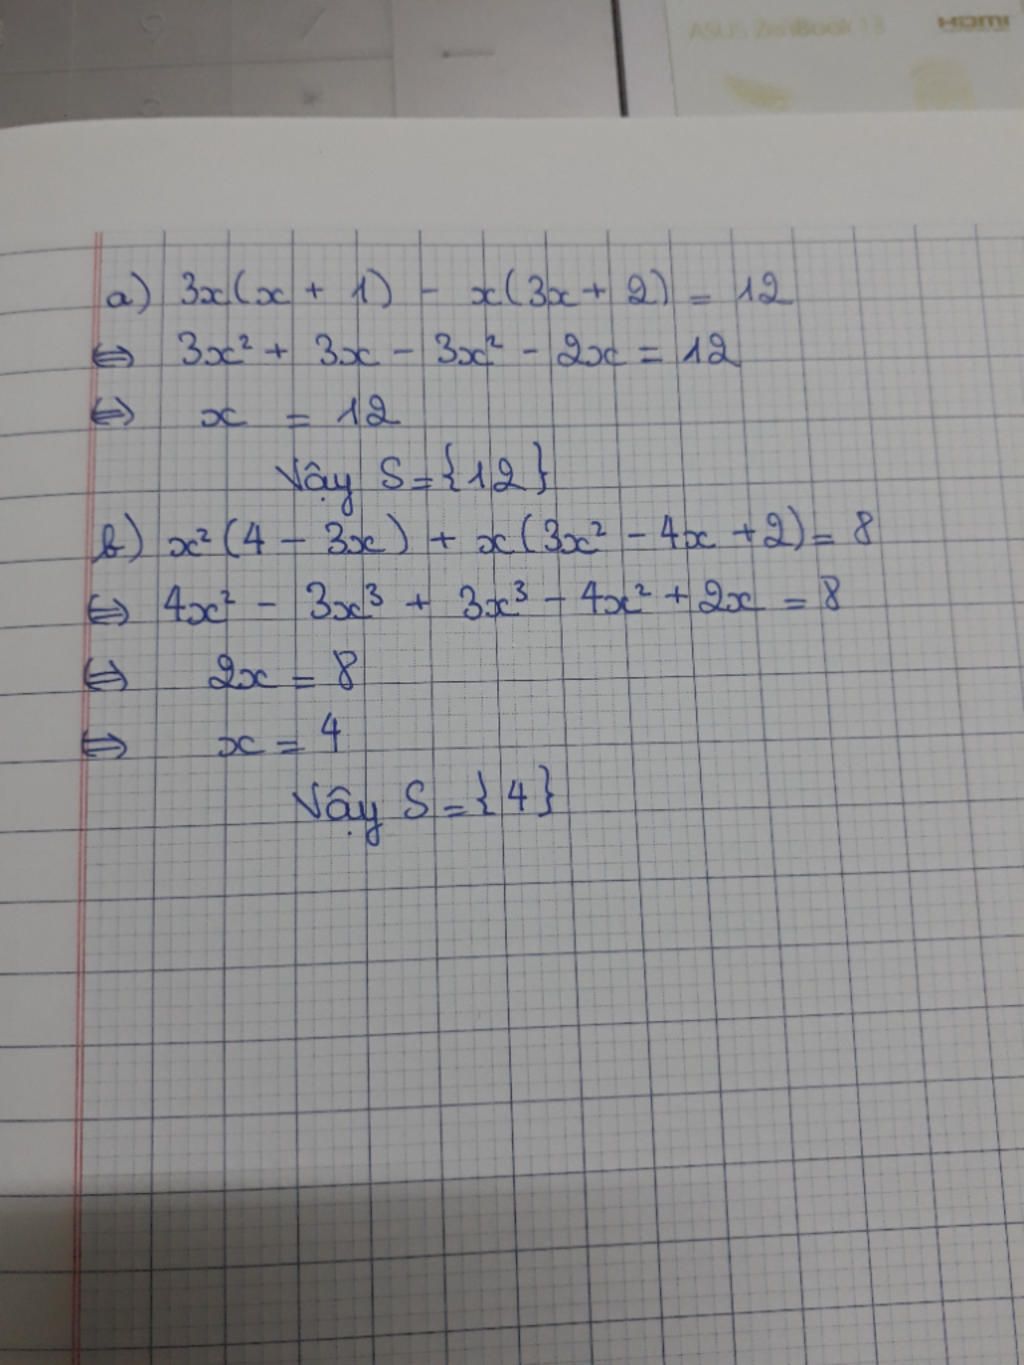 ASUS ZenBook 13
HDMI
a) 3x(x + 1) - x(3x + 2) = 12
⇔ 3x² + 3x - 3x² - 2x = 12
⇔ x = 12
Vậy S = {12}
b) x²(4 - 3x) + x(3x² - 4x + 2) = 8
⇔ 4x² - 3x³ + 3x³ - 4x² + 2x = 8
⇔ 2x = 8
⇔ x = 4
Vậy S = {4}